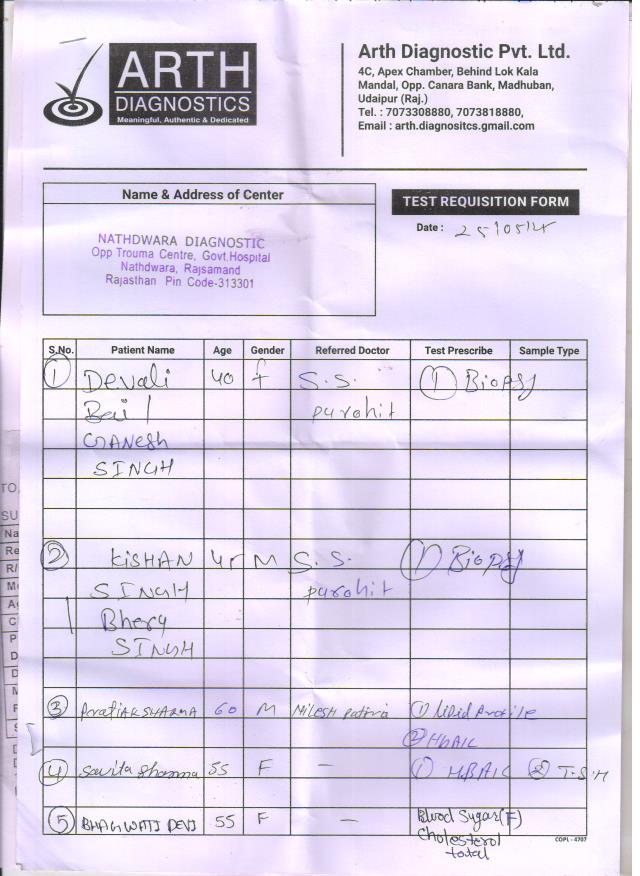 ARTH
DIAGNOSTICS
Meaningful, Authentic & Dedicated
Arth Diagnostic Pvt. Ltd.
4C, Apex Chamber, Behind Lok Kala
Mandal, Opp. Canara Bank, Madhuban,
Udaipur (Raj.)
Tel. : 7073308880, 7073818880,
Email : arth.diagnositcs.gmail.com
Name & Address of Center
NATHDWARA DIAGNOSTIC
Opp Trouma Centre, Govt.Hospital
Nathdwara, Rajsamand
Rajasthan Pin Code-313301
TEST REQUISITION FORM
Date :
S.No. Patient Name Age Gender Referred Doctor Test Prescribe Sample Type
1 Devali 40 f S.S. 1 Biopsy
Bai / purohit
GANESH
SINGH
2 KISHAN 45 M S.S. 1 Biopsy
SINGH purohit
/ Bhery
SINGH
3 SHARMA 60 M NILESH 1 Lipid Profile
2 HbA1C
4 Savita Sharma 55 F - 1 HBA1C 2 T.S.H
5 BHAGWATI DEVI 55 F - Blood Sugar (F)
Cholesterol
total
COPL - 4707
TO,
SU
Na
Re
R/